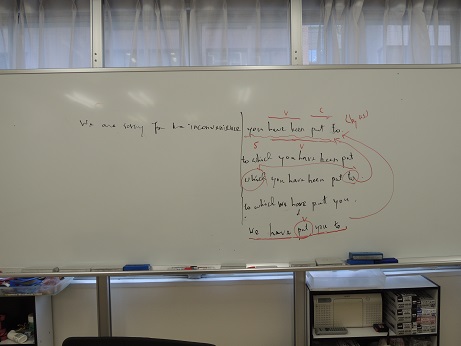 V C
We are sorry for the inconvenience you have been put to (by us)
S V
to which you have been put
which you have been put to
to which we have put you.
V
We have put you to